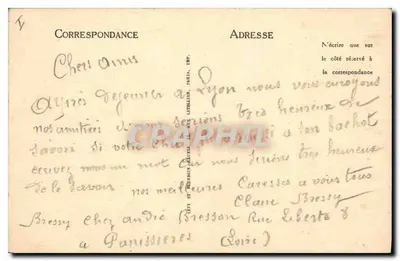 CORRESPONDANCE
ADRESSE
N'écrire que sur
le côté réservé à
la correspondance
Chers amis
Après dejeuner a Lyon nous vous envoyons
nos amitiées serions tres heureux de
savoir si votre a son bachot
ecuvez nous un mot car nous serions tres heureux
de le savoir nos meilleures Caresses a vous tous
Claire Bressy
Bressy chez andré Bresson Rue Liberté 8
a Panissieres (Loire)
CPAPHIL